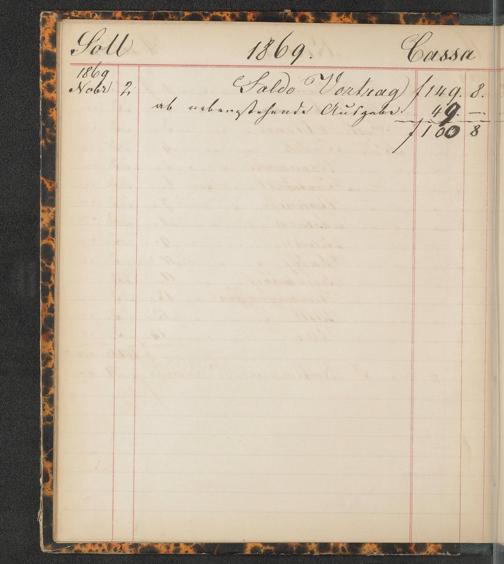 Soll 1869. Cassa
1869
Nobr 2, Saldo Vortrag f 149. 8.
ab nebenstehende Ausgabe 49. —
f 100 8